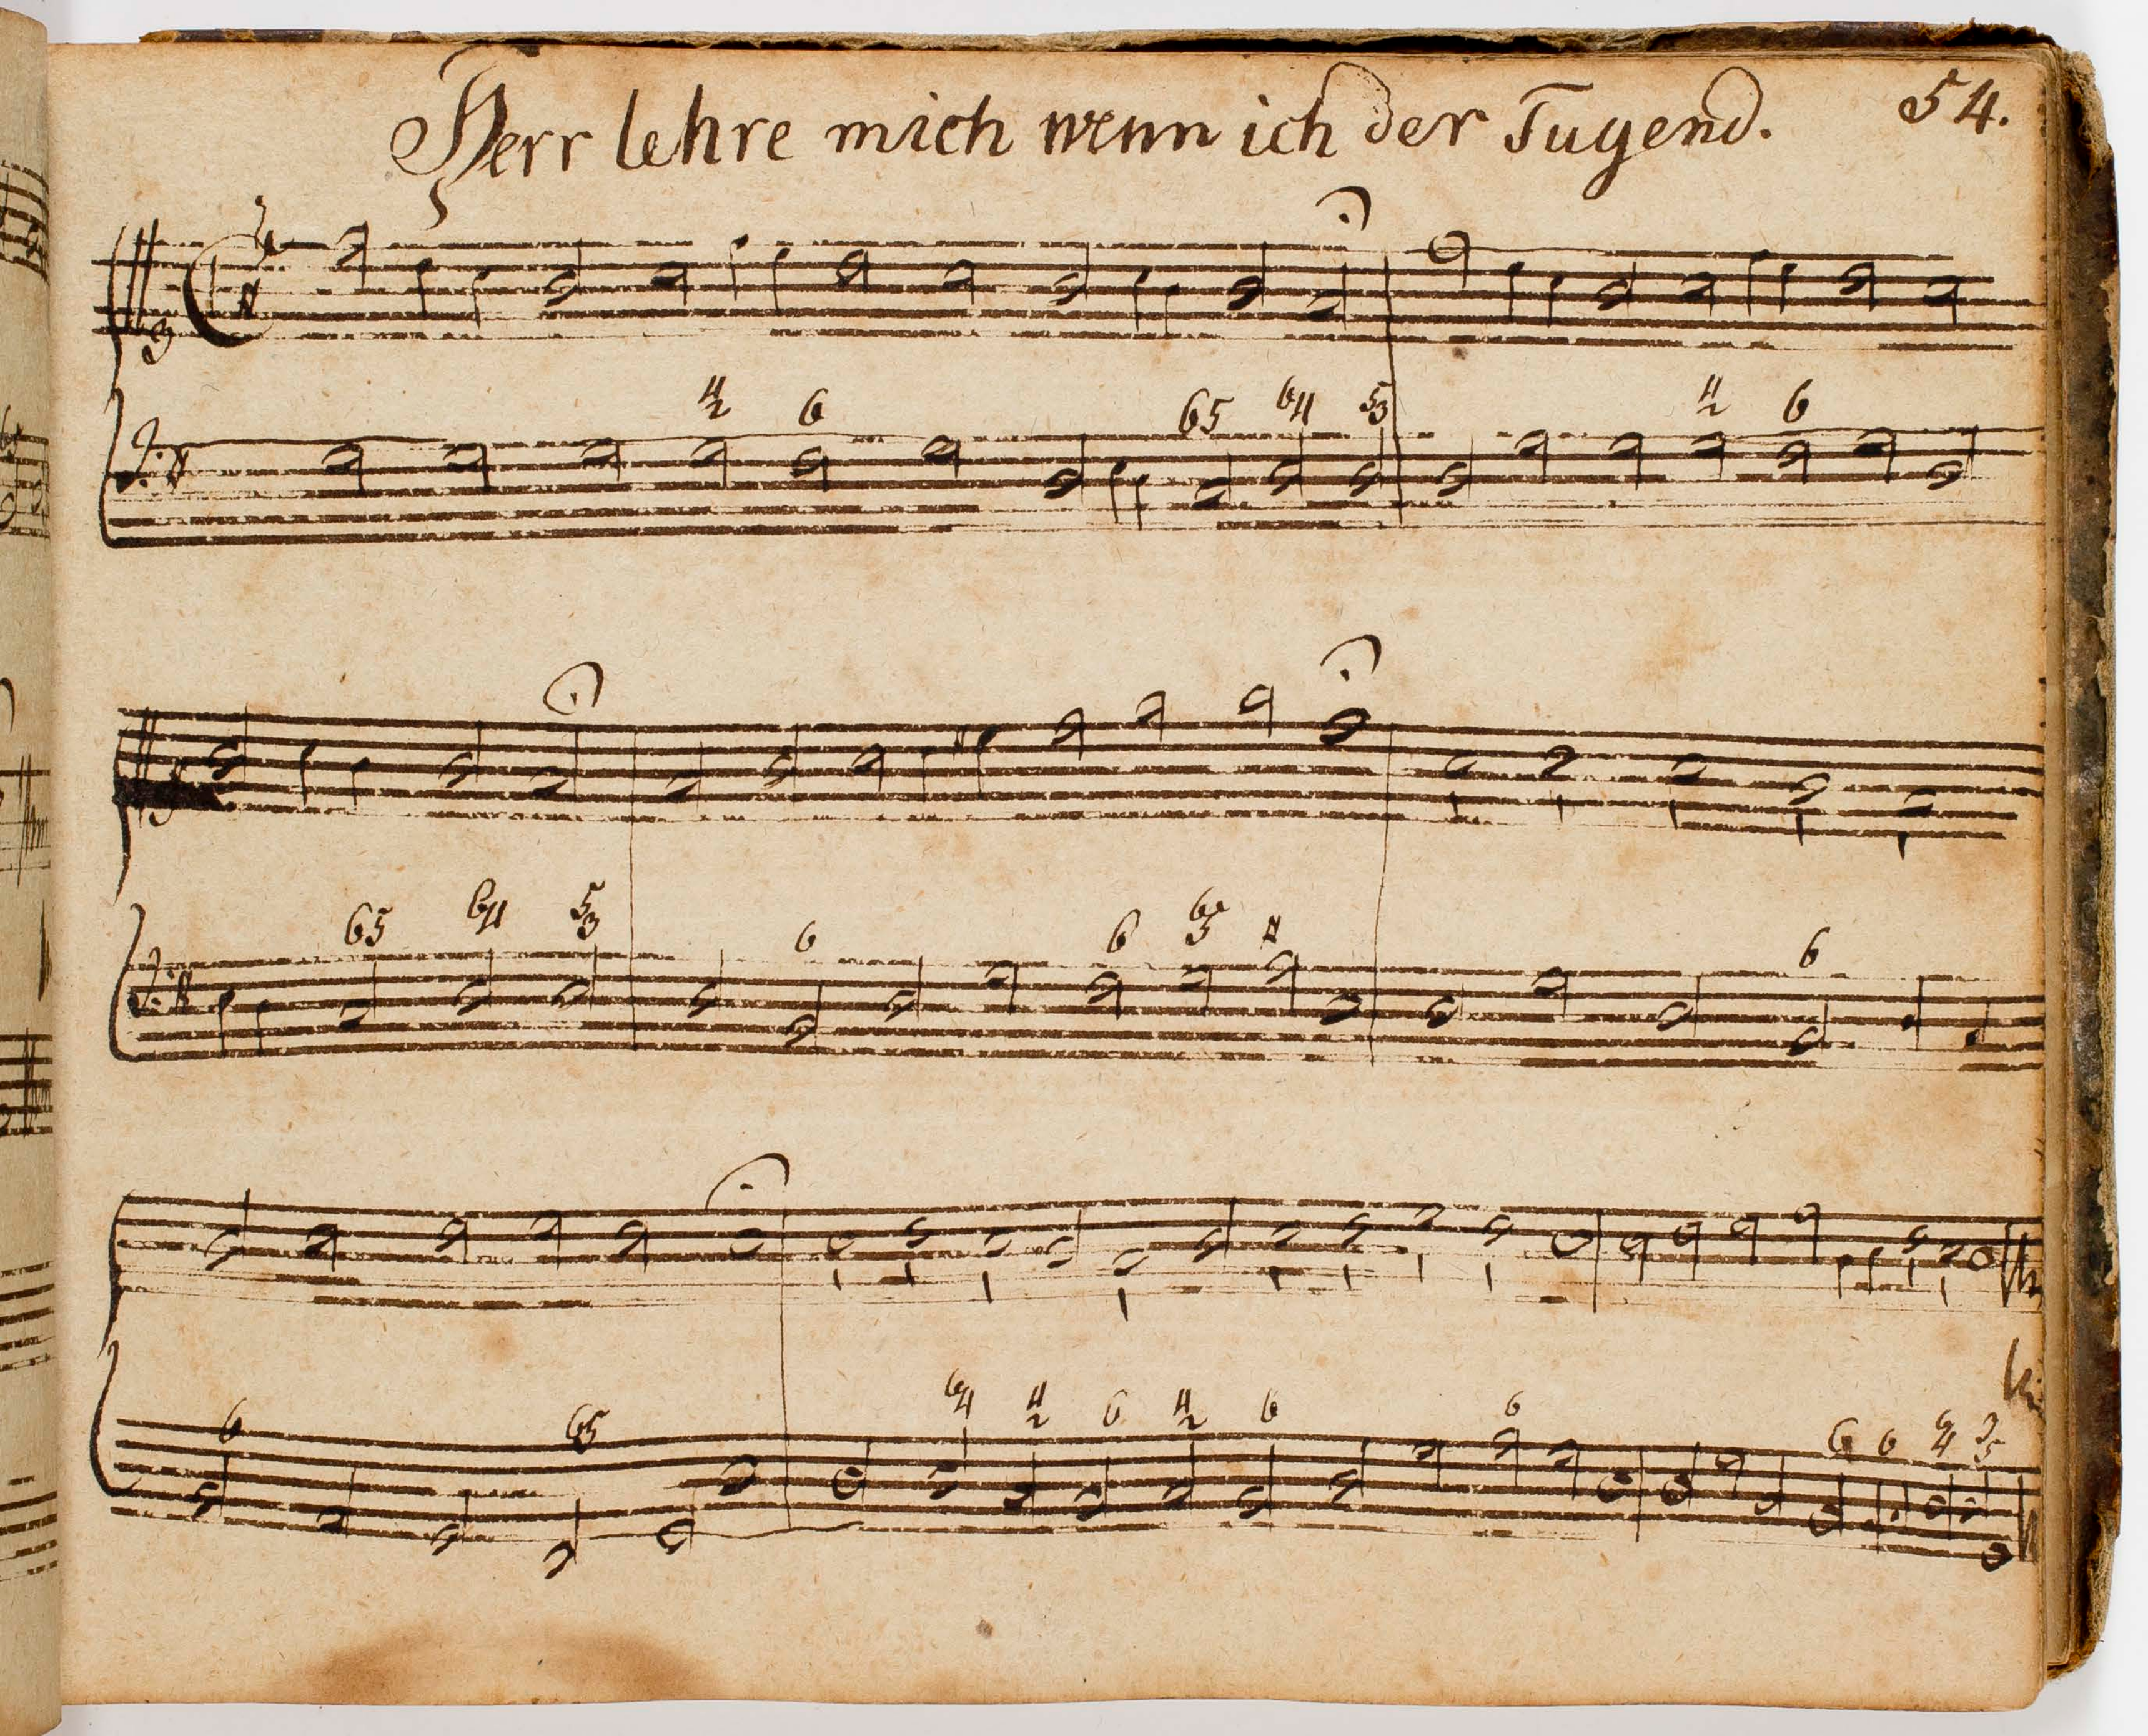 Herr lehre mich wenn ich der Tugend. 54.
4 2 6 65 64 53 4 2 6
65 64 53 6 6 65 6
6 65 64 4 2 6 4 2 6 6 6 6 6 4